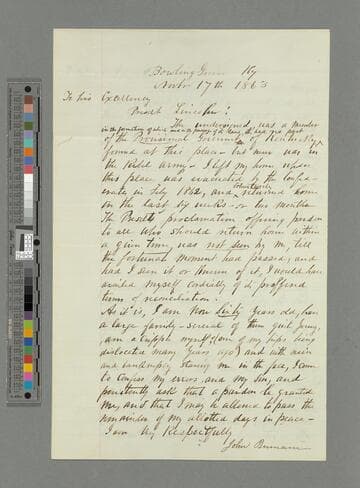 Bowling Green Ky
Novr 17th 1863
To his Excellency
Presdt Lincoln:
The undersigned was a member
of the Provisional Government of Kentucky
formed at this place but was not in
the Rebel army. I left my home when
this place was evacuated by the Confed-
erates in Feby 1862, and voluntarily returned home
in the last by weeks or two months
The Presdts proclamation offering pardon
to all who should return home within
a given time, was not seen by me, till
the fortunate moment had passed, and
had I seen it or known of it, I would have
availed myself cordially of its proffered
terms of reconciliation.
As it is, I am now sixty years old, have
a large family - several of them quite young,
am a cripple myself (one of my hips being
dislocated many years ago) and with ruin
and bankruptcy staring me in the face, I come
to confess my errors, and my sin, and
penitently ask that a pardon be granted
me, and that I may be allowed to pass the
remainder of my allotted days in peace -
I am Vry Respectfully
John Burnam